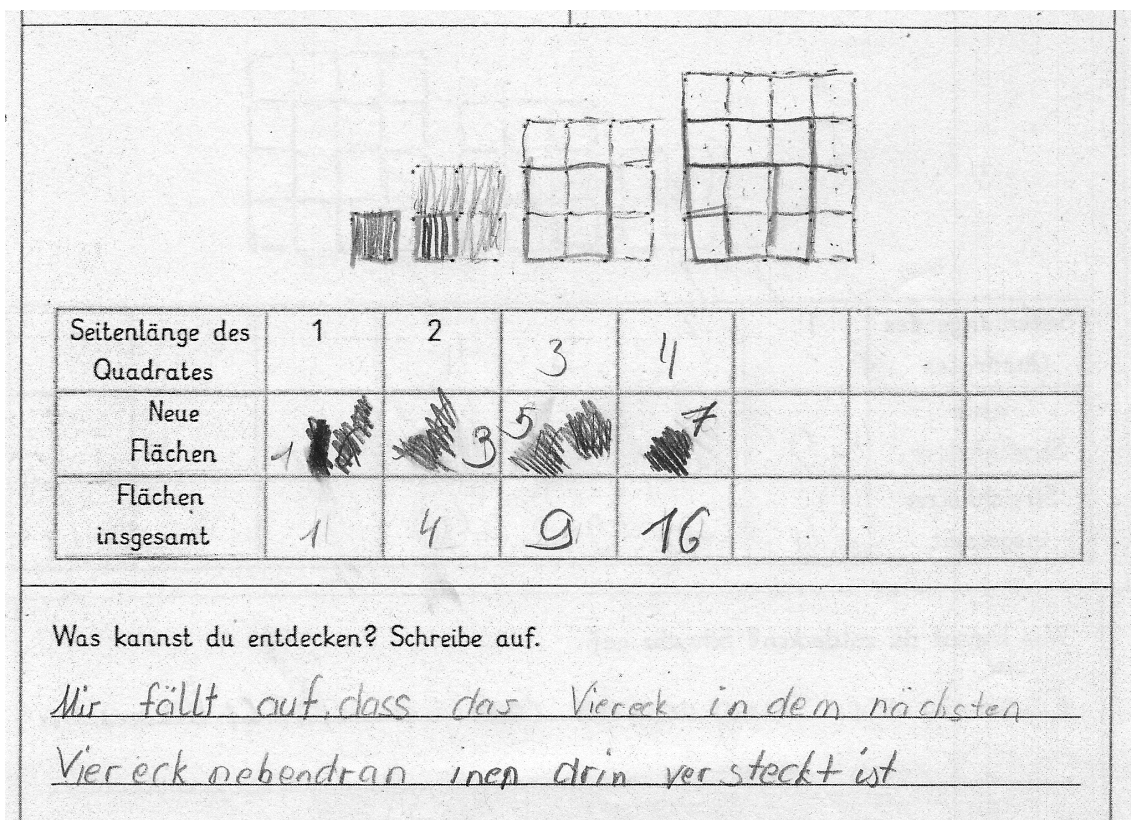 Seitenlänge des 1 2
Quadrates 3 4
Neue
Flächen 1 3 5 7
Flächen
insgesamt 1 4 9 16
Was kannst du entdecken? Schreibe auf.
Mir fällt auf, dass das Viereck in dem nächsten
Viereck nebendran inen drin versteckt ist